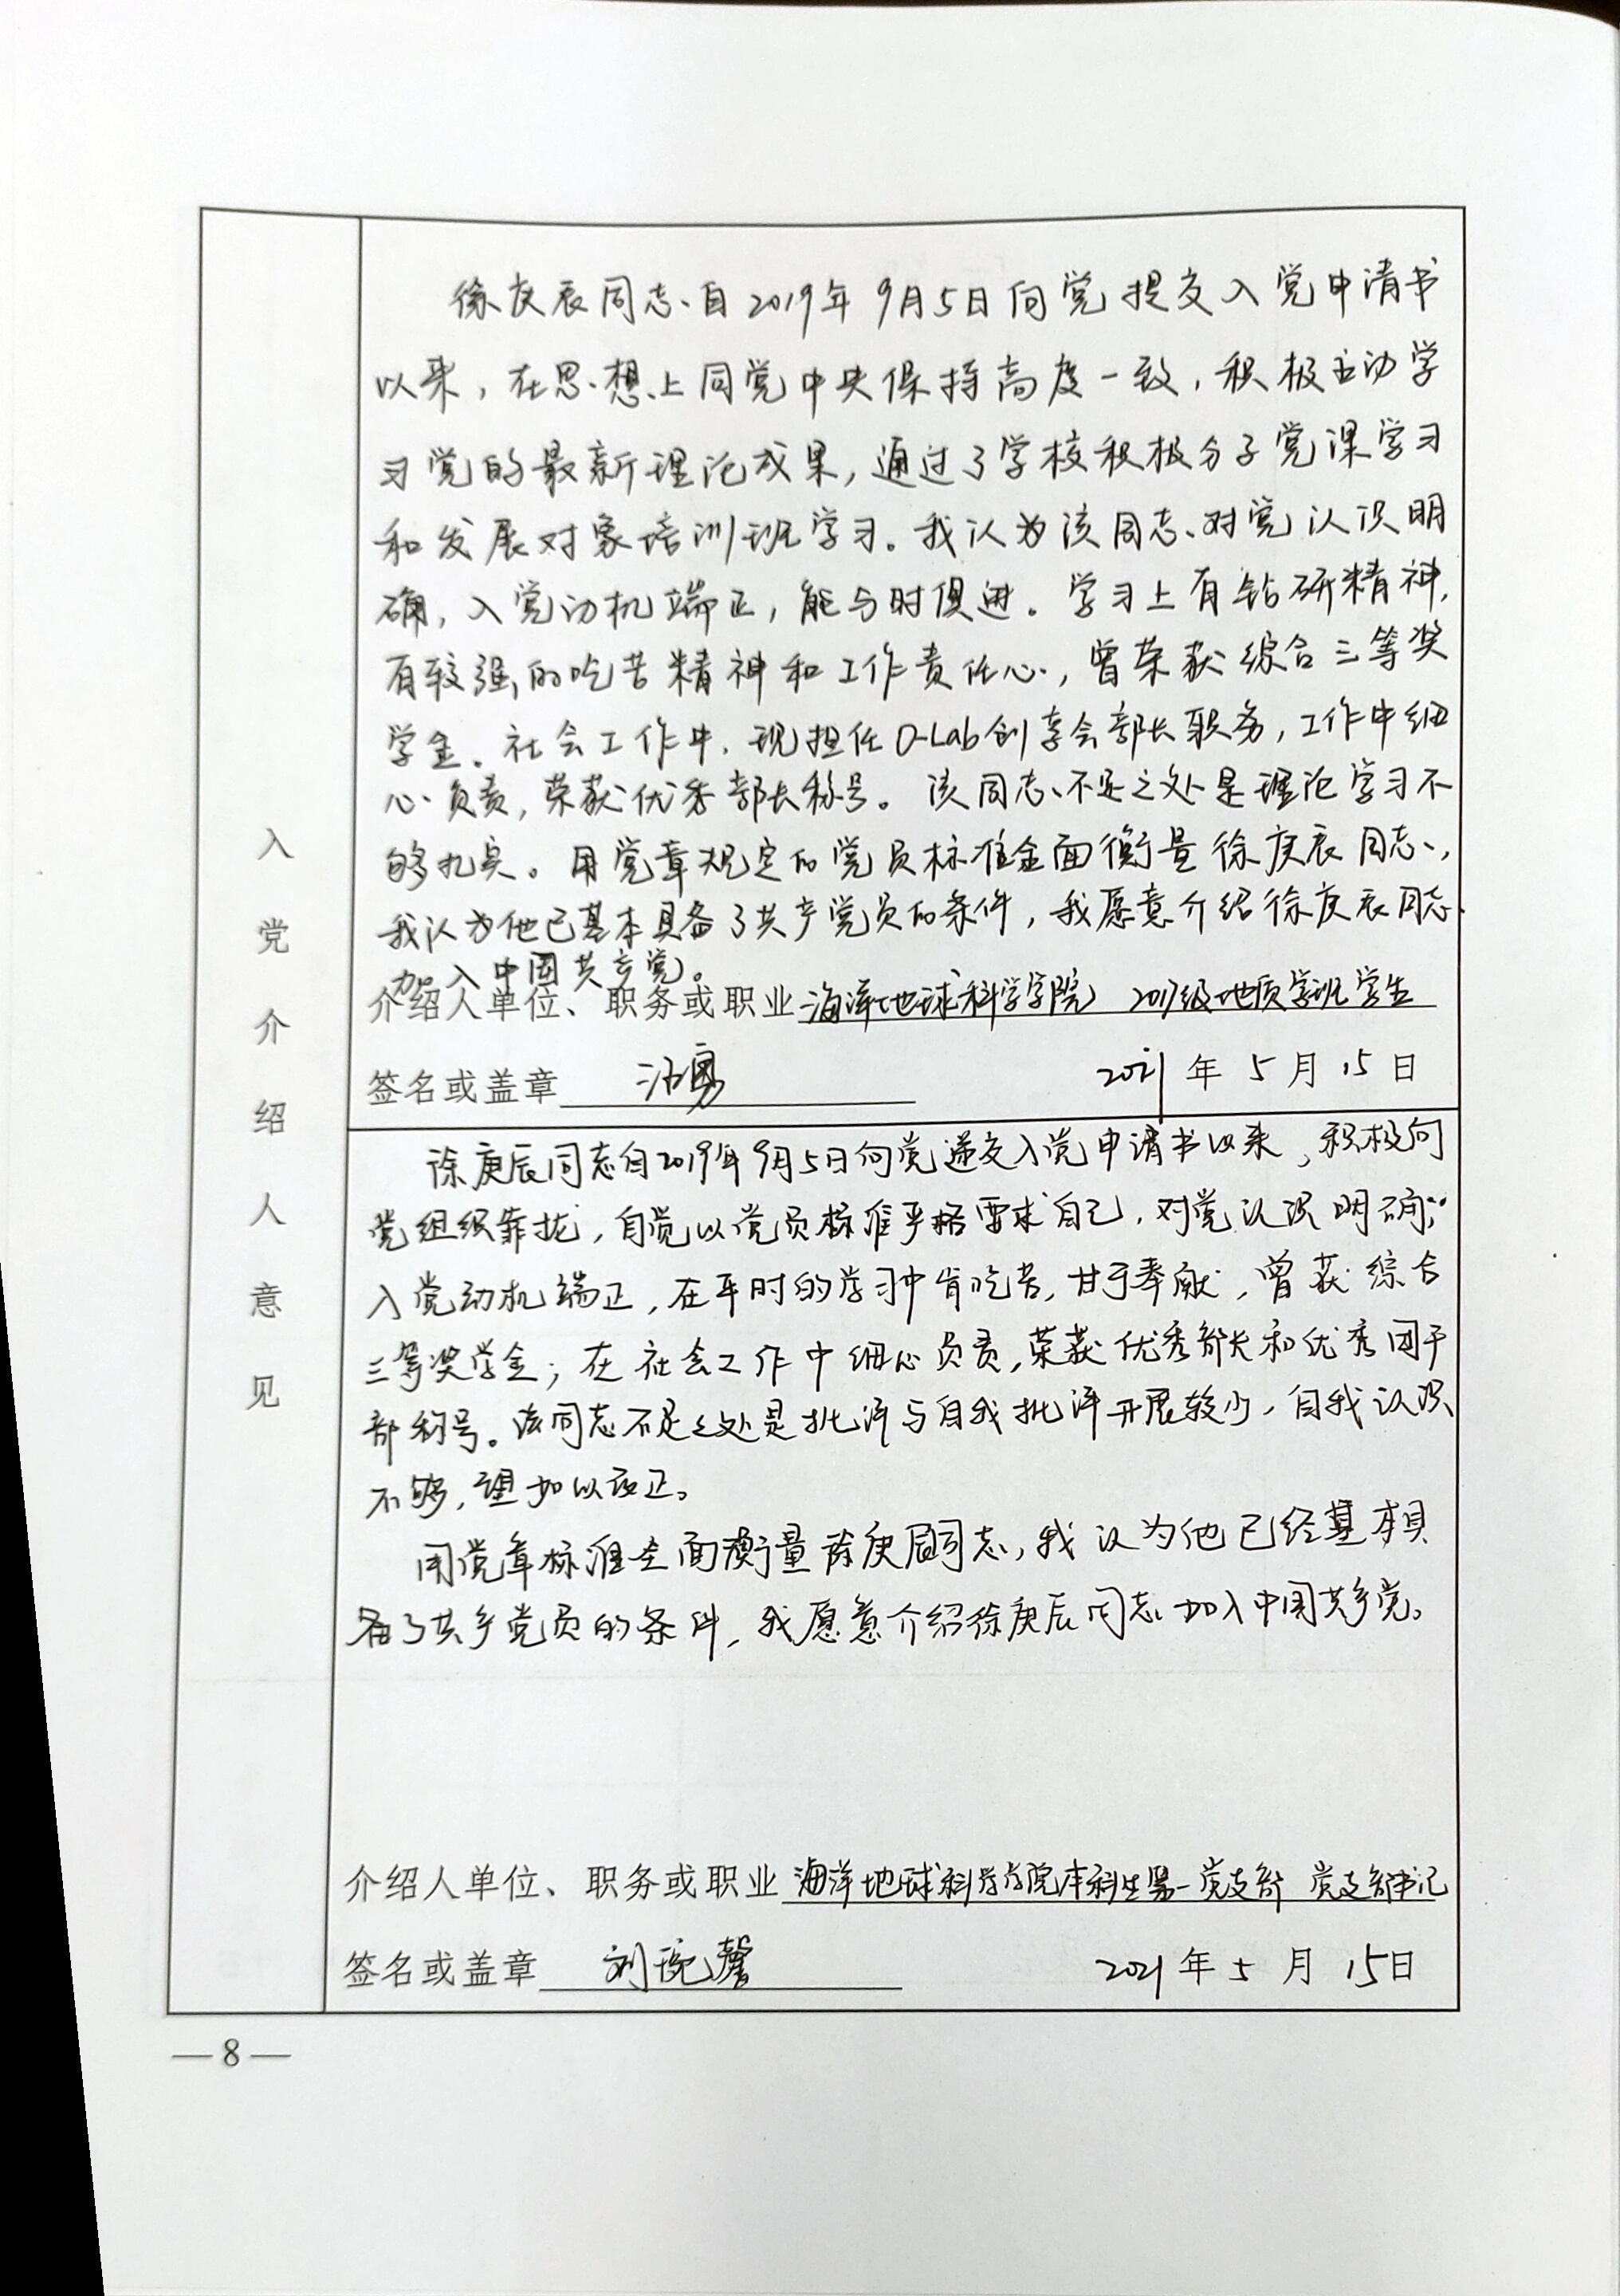 入党介绍人意见
徐庚辰同志自2019年9月5日向党提交入党申请书
以来，在思想上同党中央保持高度一致，积极主动学
习党的最新理论成果，通过了学校积极分子党课学习
和发展对象培训班学习。我认为该同志对党认识明
确，入党动机端正，能与时俱进。学习上有钻研精神，
有较强的吃苦精神和工作责任心，曾荣获综合三等奖
学金。社会工作中，现担任O-Lab创享会部长职务，工作中细
心负责，荣获优秀部长称号。该同志不足之处是理论学习不
够扎实。用党章规定的党员标准全面衡量徐庚辰同志，
我认为他已基本具备了共产党员的条件，我愿意介绍徐庚辰同志
加入中国共产党。
介绍人单位、职务或职业 海洋地球科学学院 2017级地质学班学生
签名或盖章 2021年5月15日
徐庚辰同志自2019年9月5日向党递交入党申请书以来，积极向
党组织靠拢，自觉以党员标准严格要求自己，对党认识明确；
入党动机端正，在平时的学习中肯吃苦，甘于奉献，曾获综合
三等奖学金；在社会工作中细心负责，荣获优秀部长和优秀团干
部称号。该同志不足之处是批评与自我批评开展较少，自我认识
不够，望加以改正。
用党章标准全面衡量徐庚辰同志，我认为他已经基本具
备了共产党员的条件，我愿意介绍徐庚辰同志加入中国共产党。
介绍人单位、职务或职业 海洋地球科学学院本科生第一党支部 党支部书记
签名或盖章 刘琬馨 2021年5月15日
—8—